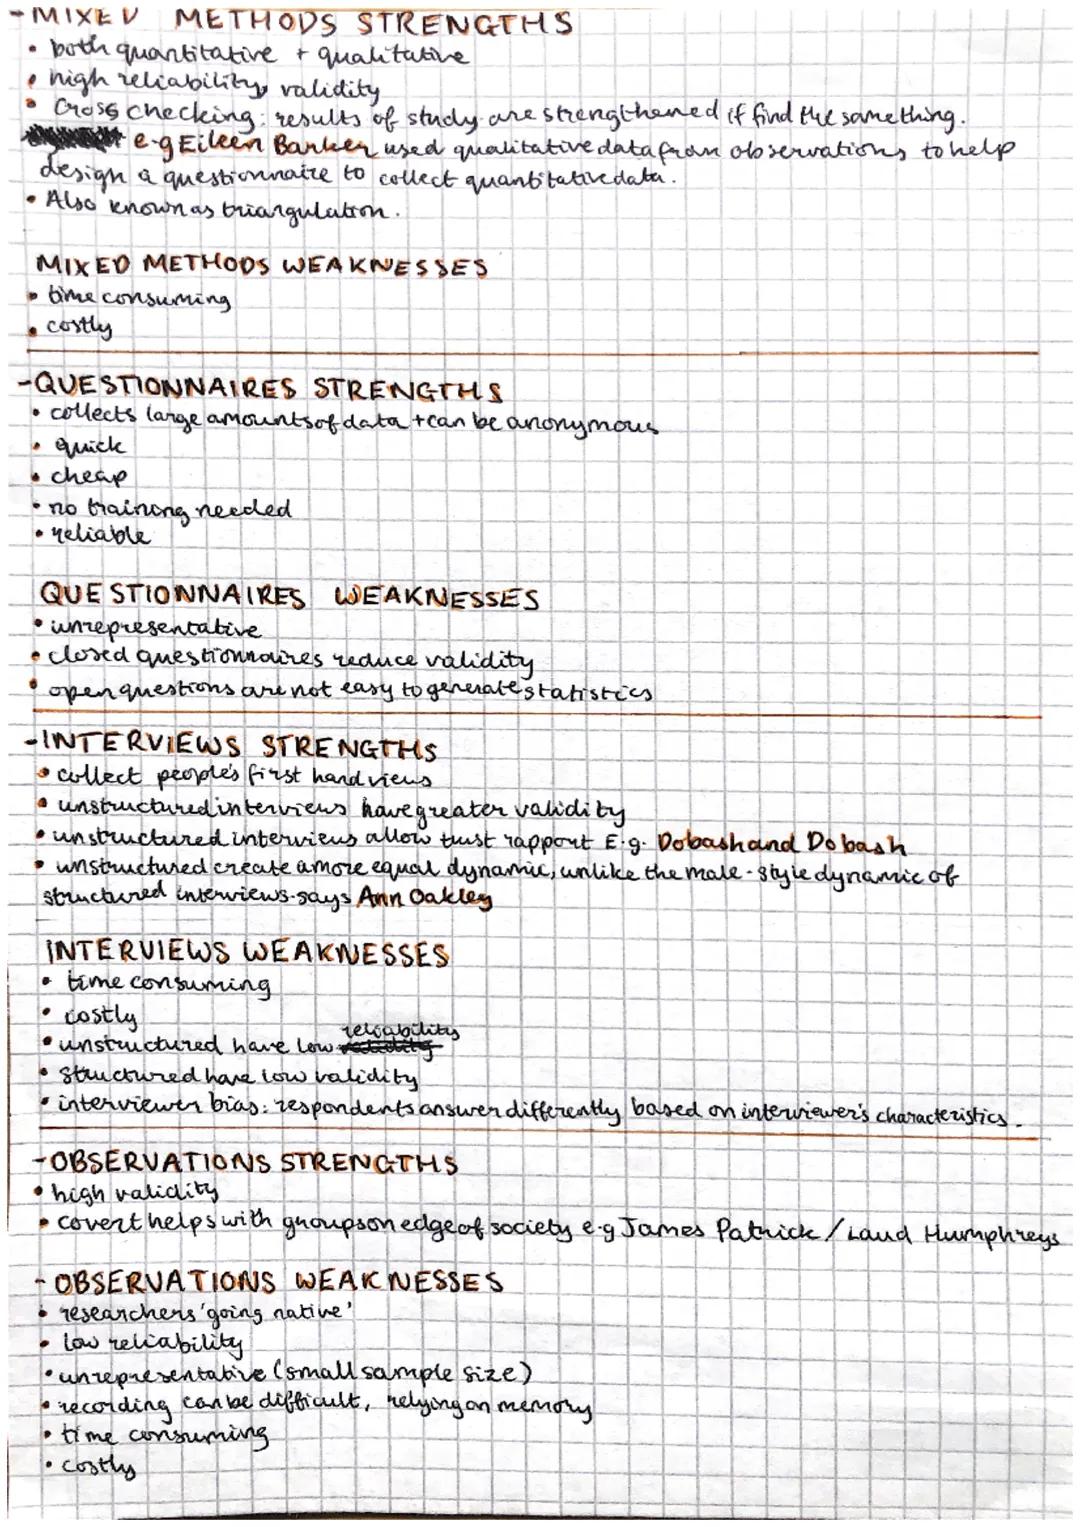 -MIXED METHODS STRENGTHS
• both quantitative + qualitative
• high reliability, validity
• Cross checking: results of study are strengthened if find the same thing.
e.g Eileen Barker used qualitative data from observations to help
design a questionnaire to collect quantitative data.
• Also known as triangulation.
MIXED METHODS WEAKNESSES
• time consuming
• costly
-QUESTIONNAIRES STRENGTHS
• collects large amounts of data + can be anonymous
• quick
• cheap
• no training needed
• reliable
QUESTIONNAIRES WEAKNESSES
• unrepresentative
• closed questionnaires reduce validity
• open questions are not easy to generate statistics
-INTERVIEWS STRENGTHS
• collect people's first hand views
• unstructured interviews have greater validity
• unstructured interviews allow trust rapport E.g. Dobash and Dobash
• unstructured create a more equal dynamic, unlike the male-style dynamic of
structured interviews-says Ann Oakley
INTERVIEWS WEAKNESSES
• time consuming
• costly
• unstructured have low reliability
• structured have low validity
• interviewer bias: respondents answer differently based on interviewer's characteristics.
-OBSERVATIONS STRENGTHS
• high validity
• covert helps with groups on edge of society e.g James Patrick / Laud Humphreys
- OBSERVATIONS WEAKNESSES
• researchers 'going native'
• low reliability
• unrepresentative (small sample size)
• recording can be difficult, relying on memory
• time consuming
• costly